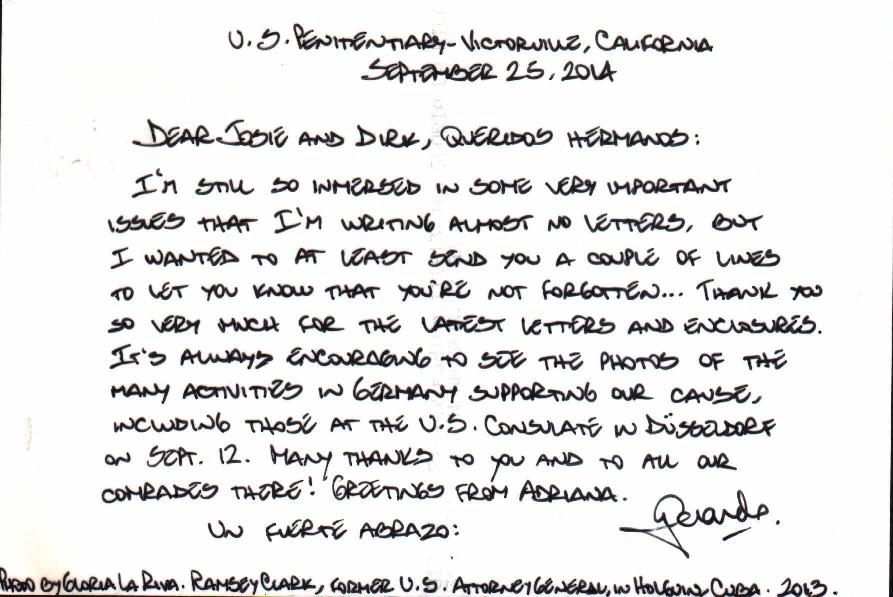 U.S. PENITENTIARY-VICTORVILLE, CALIFORNIA
SEPTEMBER 25, 2014
DEAR JOSIE AND DIRK, QUERIDOS HERMANOS:
I'M STILL SO INMERSED IN SOME VERY IMPORTANT
ISSUES THAT I'M WRITING ALMOST NO LETTERS, BUT
I WANTED TO AT LEAST SEND YOU A COUPLE OF LINES
TO LET YOU KNOW THAT YOU'RE NOT FORGOTTEN... THANK YOU
SO VERY MUCH FOR THE LATEST LETTERS AND ENCLOSURES.
IT'S ALWAYS ENCOURAGING TO SEE THE PHOTOS OF THE
MANY ACTIVITIES IN GERMANY SUPPORTING OUR CAUSE,
INCLUDING THOSE AT THE U.S. CONSULATE IN DÜSSELDORF
ON SEPT. 12. MANY THANKS TO YOU AND TO ALL OUR
COMRADES THERE! GREETINGS FROM ADRIANA.
UN FUERTE ABRAZO: Gerardo.
PHOTO BY GLORIA LA RIVA. RAMSEY CLARK, FORMER U.S. ATTORNEY GENERAL, IN HOLGUIN, CUBA. 2013.